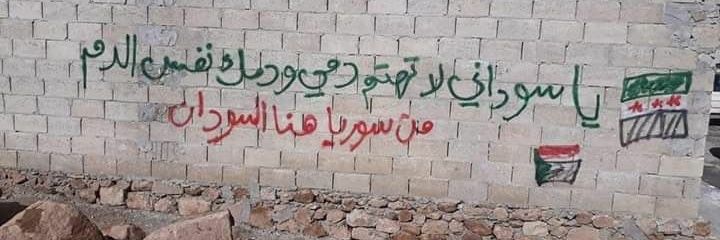 يا سوداني لا تهتم دمي ودمك نفس الدم
من سوريا هنا السودان